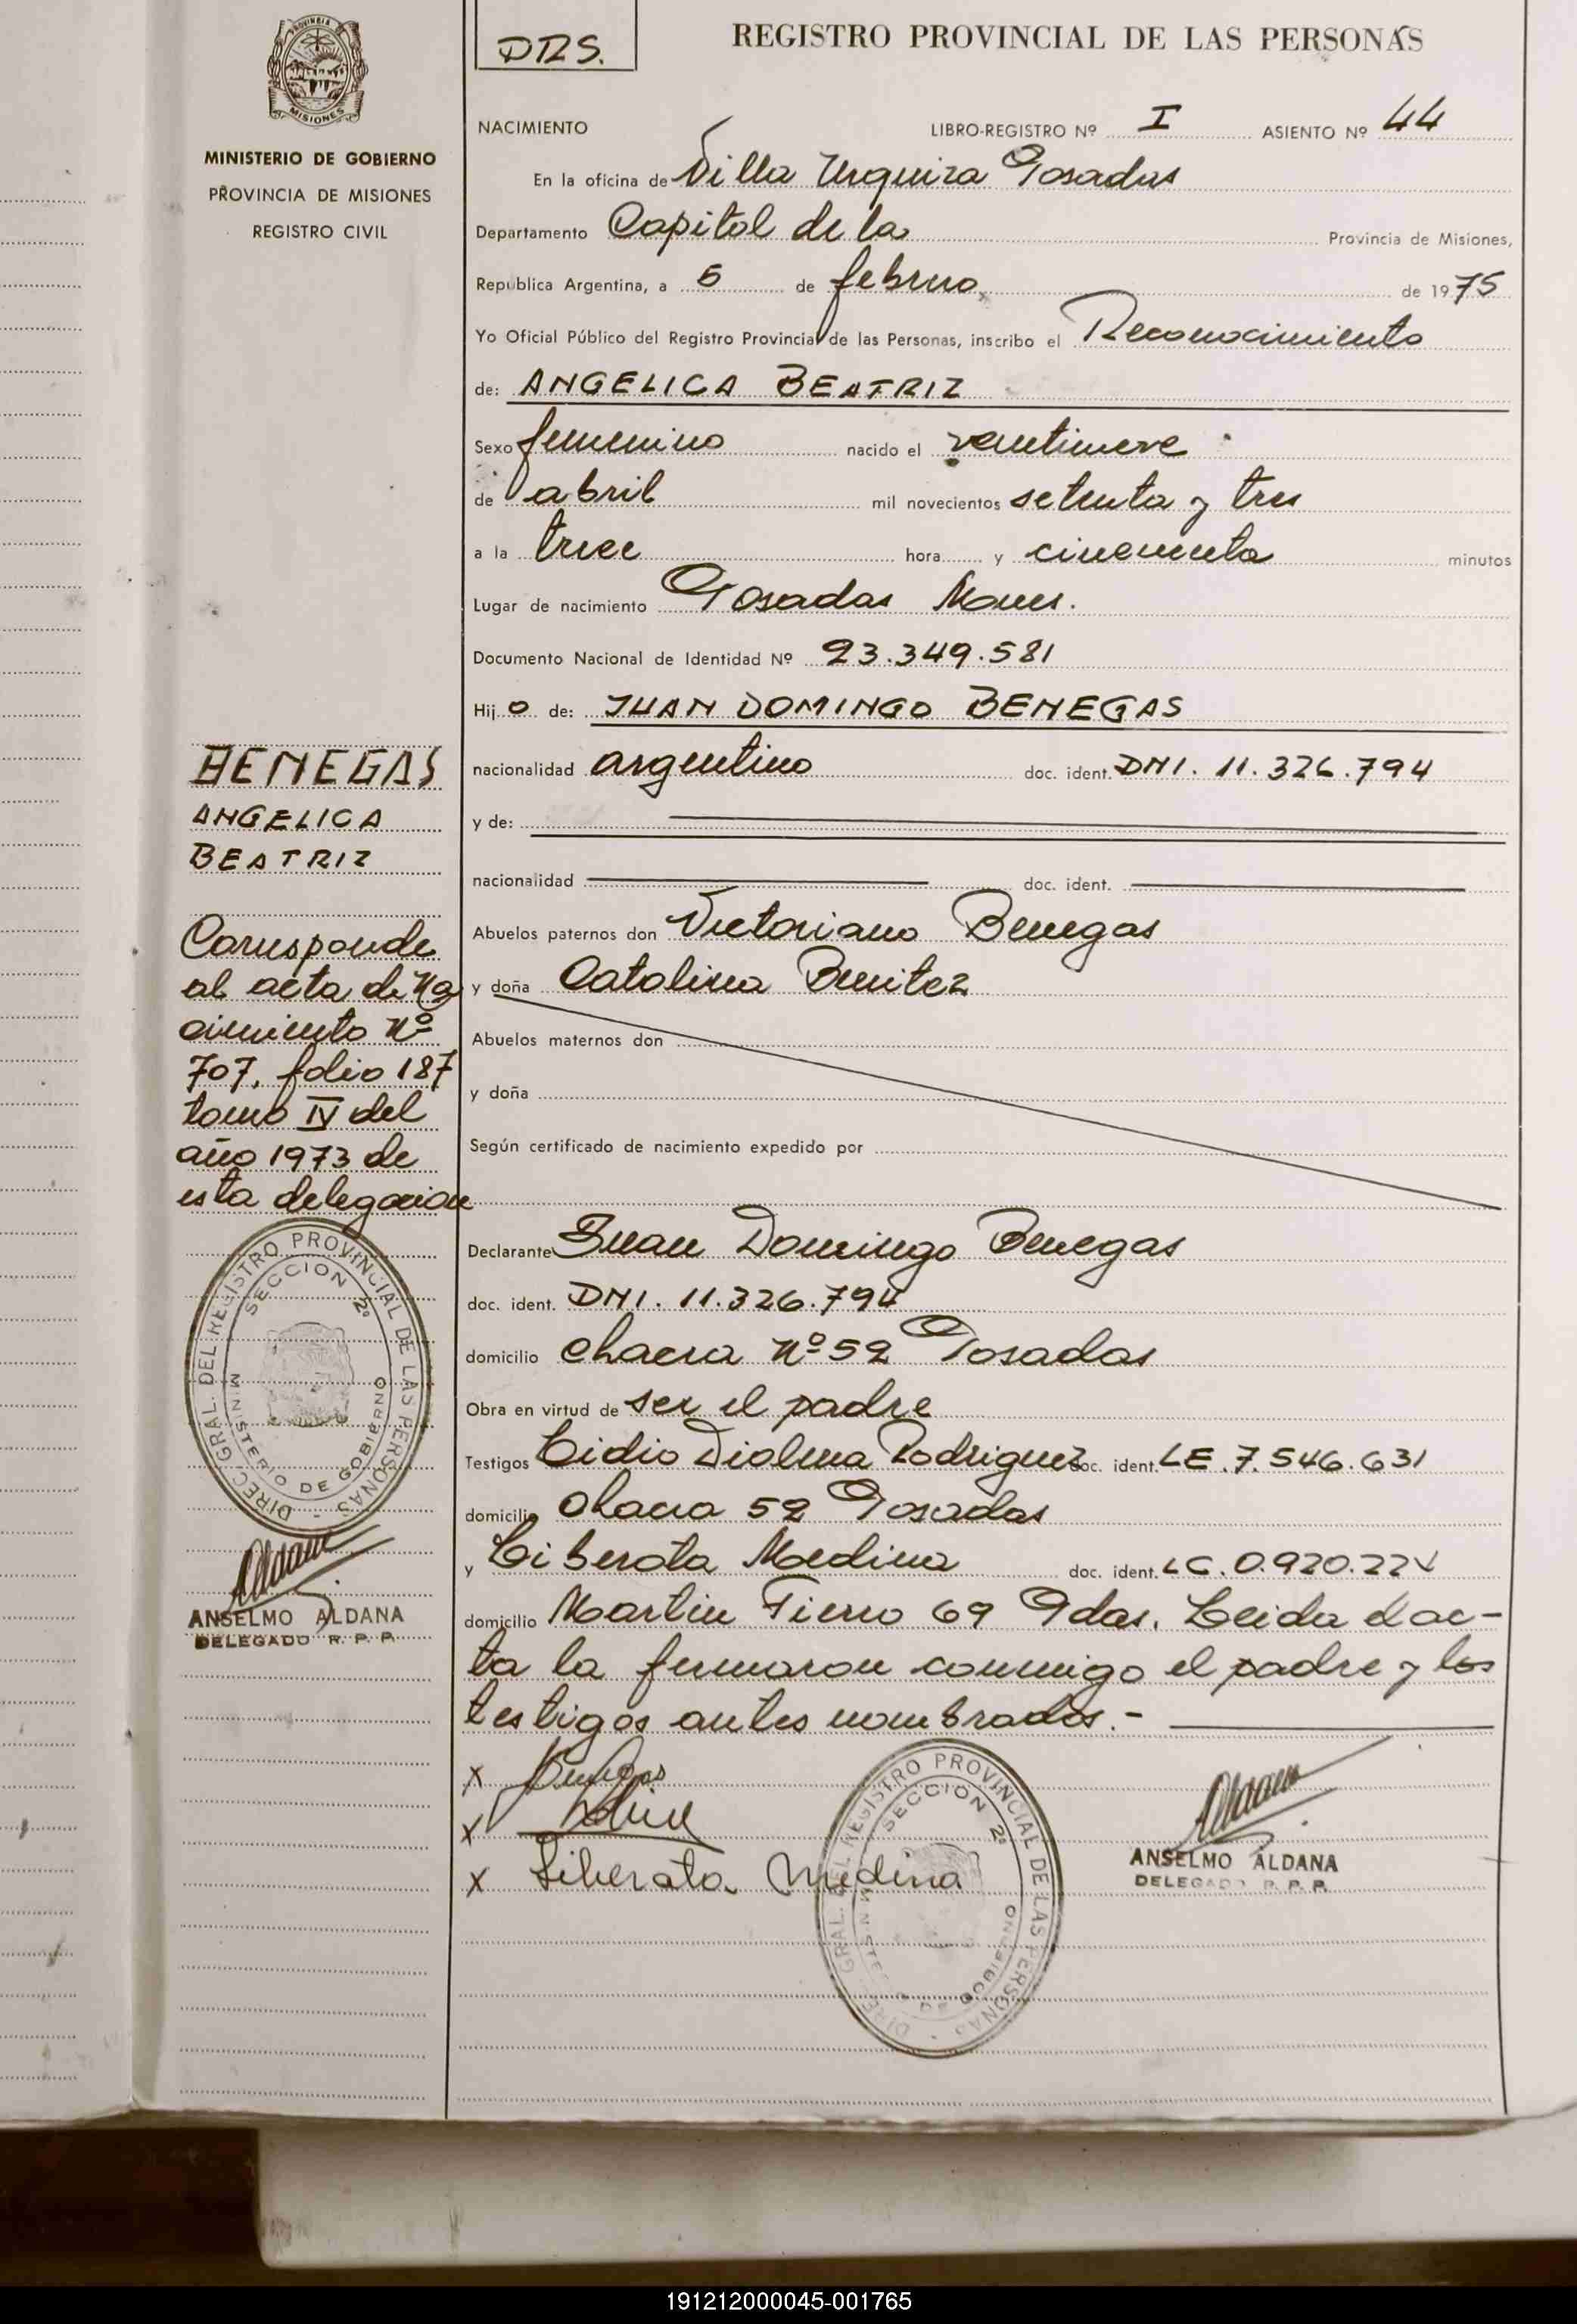 PROVINCIA
MISIONES
MINISTERIO DE GOBIERNO
PROVINCIA DE MISIONES
REGISTRO CIVIL
DRS.
REGISTRO PROVINCIAL DE LAS PERSONAS
NACIMIENTO LIBRO-REGISTRO Nº I ASIENTO Nº 44
En la oficina de Villa Urquiza Posadas
Departamento Capital de la Provincia de Misiones,
Republica Argentina, a 6 de febrero de 1975
Yo Oficial Público del Registro Provincial de las Personas, inscribo el Reconocimiento
de: ANGELICA BEATRIZ
Sexo femenino nacido el veintinueve
de abril mil novecientos setenta y tres
a la trece hora y cincuenta minutos
Lugar de nacimiento Posadas Mnes.
Documento Nacional de Identidad Nº 23.349.581
Hijo de: JUAN DOMINGO BENEGAS
nacionalidad argentino doc. ident. DNI. 11.326.794
y de:
nacionalidad doc. ident.
Abuelos paternos don Victoriano Benegas
y doña Catalina Benitez
Abuelos maternos don
y doña
Según certificado de nacimiento expedido por
Declarante Juan Domingo Benegas
doc. ident. DNI. 11.326.794
domicilio chacra Nº 52 Posadas
Obra en virtud de ser el padre
Testigos Lidio Diolma Rodriguez doc. ident. LE. 7.546.631
domicilio chacra 52 Posadas
y Liberata Medina doc. ident. LC. 0.920.224
domicilio Martin Fierro 69 Pdas. Leida el ac-
ta la firmaron conmigo el padre y los
testigos antes nombrados.-
x Benegas
x
x Liberata Medina
DIREC. GRAL. DEL REGISTRO PROVINCIAL DE LAS PERSONAS
SECCION 2º
MINISTERIO DE GOBIERNO
Aldana
ANSELMO ALDANA
DELEGADO R. P. P.
BENEGAS
ANGELICA
BEATRIZ
Corresponde
al acta de Na
cimiento Nº
707, folio 187
tomo IV del
año 1973 de
esta delegacion
DIREC. GRAL. DEL REGISTRO PROVINCIAL DE LAS PERSONAS
SECCION 2º
MINISTERIO DE GOBIERNO
Aldana
ANSELMO ALDANA
DELEGADO R. P. P.
191212000045-001765